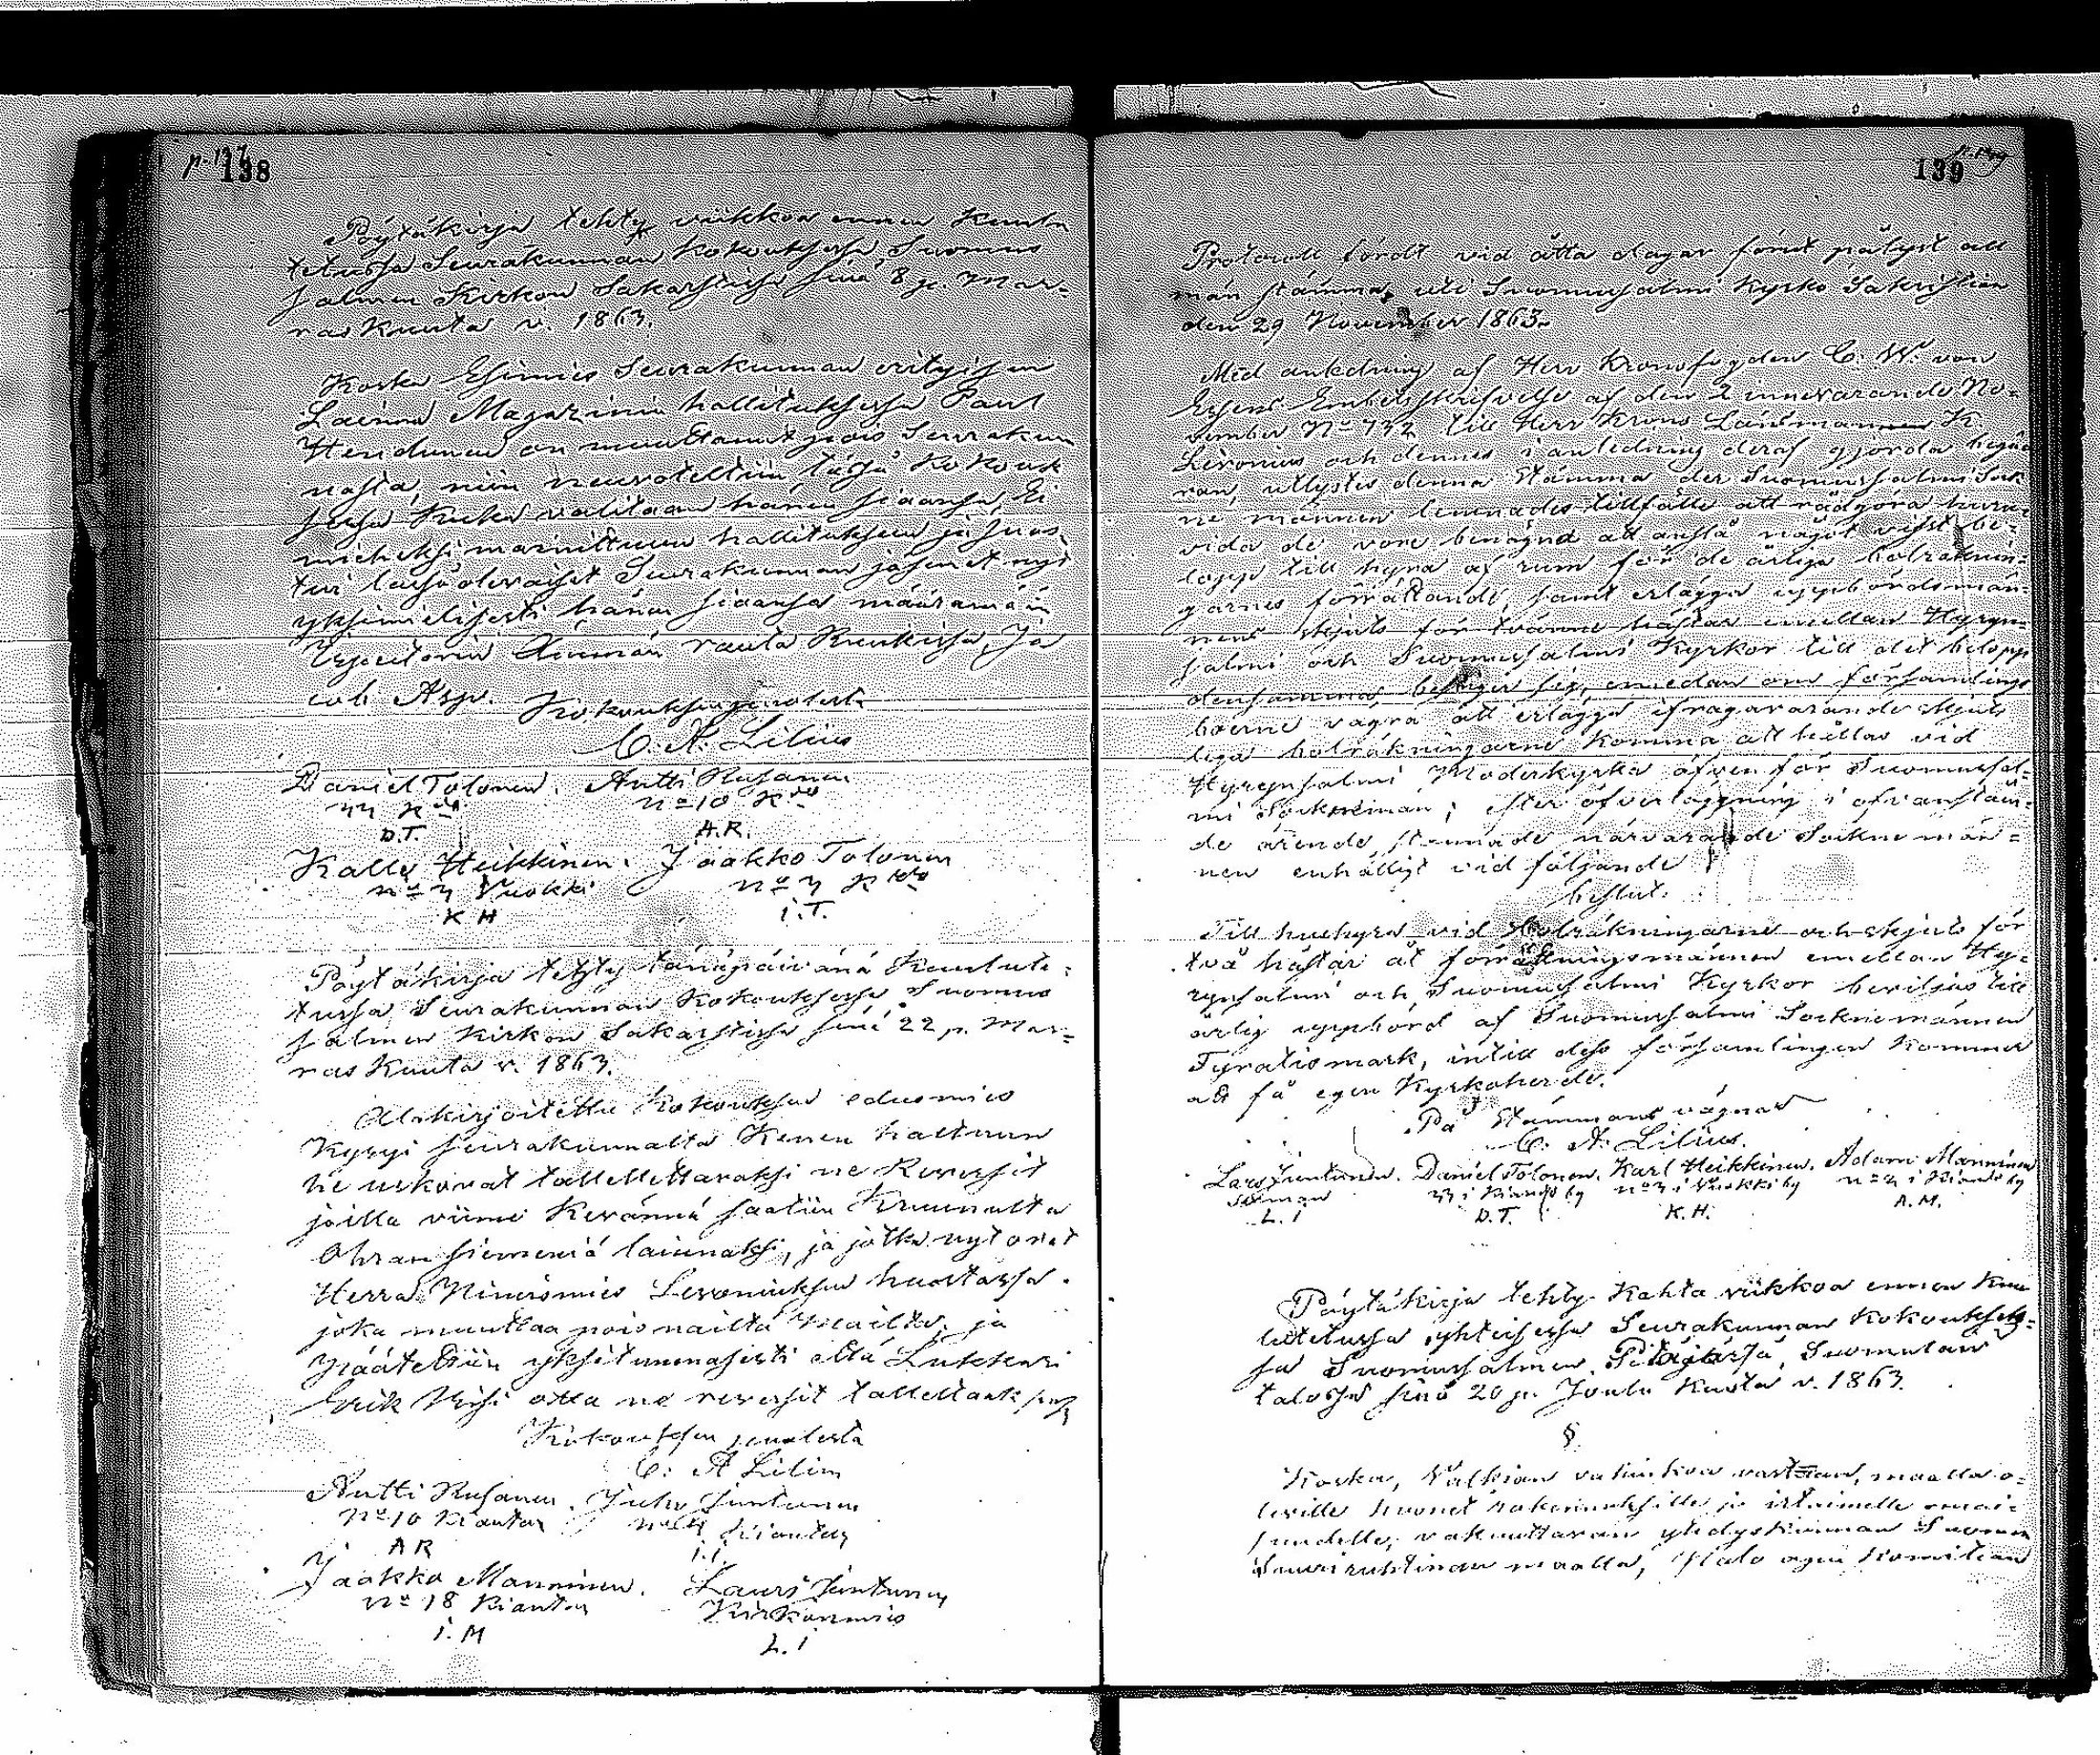 138
Pöytäkirja tehty viikkoa ennen Kuulu
tetussa Seurakunnan Kokouksessa Suomus
salmen Kirkon Sakarstissa sinä 8 p. Mar-
ras Kuuta v. 1863.
Koska Esimies Seurakunnan erityisen
Lainna Magazinin hallituksessa Paul
Heridunen on muuttanut pois Seurakun
nasta, niin neuvoteltiin tässä Kokouk
sessa Kuka valitaan hänen siaansa, Ei
miehexsi mainittuun hallitukseen ja suos
tui läsnäolevaiset Seurakunnan jäsenet nyt
yksimielisesti hänen siaansa määräämään
Inspectorin Ämmän rauta Ruukissa, Ja
cob Asp.
Kokouksen puolesta
C. A. Lilius
Daniel Tolonen. Antti Rusanen
No 10
D.T. A.R.
Kalle Heikkinen. Jaakko Tolonen
No 3 Vuokki No 3
K H i.T.
Pöytäkirja tehty tänäpäivänä Kuulute-
tussa Seurakunnan Kokouksessa Suomus
salmen Kirkon Sakarstissa sinä 22 p. Mar-
ras Kuuta v. 1863.
Allekirjoitettu Kokouksen edusmies
Kysyi seurakunnalta Kenen haltuun
he uskovat tallellettavaksi ne Reversit
joilla viime Keväänä saatiin Kruunulta
Ohran siemeniä lainaksi, ja jotka nyt ovat
Herra Nimismies Levoniuksen huostassa.
joka muuttaa pois näiltä mailta, ja
Päätettiin yksituumaisesti että Lukkari
Erik Väisi ottaa ne reversit tallettaak
Kokouksen puolesta
C. A Lilius
Antti Rusanen. Juho Juntunen
No 10 Kianta Kianta
A R i.i.
Jaakko Manninen. Lauri Juntunen
No 18 Kianta Kirkonmies
i. M L. i
139
Protocoll fördt vid åtta dagar förut pålyst all
män stämma, uti Suomussalmi Kyrko Sakristian
den 29 November 1863.
Med anledning af Herr Kronofogden C. W. von
Essens Embetsskrifvelse af den 2 innevarande No-
vember No 732 till Herr Krono Länsmannen K.
Levonius och dennes i anledning deraf gjorda begä
ran, utlystes denna Stämma der Suomussalmi Sock
ne männen lemnades tillfälle att rådgöra huru-
vida de vore benägna att anslå något visst be-
lopp till hyra af rum för de årliga bolräknin-
garnes förrättande, samt erlägga uppbördsmän-
nens skjuts för tvänne hästar emellan Hyryn-
salmi och Suomussalmi Kyrkor till det belopp
densamma bestiger sig, emedan om församlings
boerne vägra att erlägga ifrågavarande skjuts
liga bolräkningarne Komma att hållas vid
Hyrynsalmi Moderkyrka äfven för Suomussal-
mi Sockneman; efter öfverläggning i ofvanståen-
de ärende, stannade närvarande Sockne män-
nen enhälligt vid följande
beslut:
Till hushyra vid Bolräkningarne och skjuts för
två hästar åt förrättningsmännen emellan Hy-
rynsalmi och Suomussalmi Kyrkor beviljas till
årlig uppbörd af Suomussalmi Socknemännen
Fyratio mark, intill dess församlingen Kommer
att få egen Kyrkoherde.
På Stämmans vägnar
C. A. Lilius.
Lars Juntunen. Daniel Tolonen. Karl Heikkinen. Adam Manninen
Sexman 33 i Kianto by No 3 i Vuokki by No 3 i Kianto by
L. i D. T. K. H. A. M.
Pöytäkirja tehty Kahta viikkoa ennen Kuu
lutetussa yhteisessa Seurakunnan Kokoukses-
sa Suomussalmen Pitäjässä, Suomulan
talossa sinä 20 p. Joulu Kuuta v. 1863.
§.
Koska, Valkian vahinkoa vastaan, maalla o-
leville huonet rakennuksille ja irtaimelle omai-
suudelle, vakuuttavan yhdyskunnan Suomen
Suuriruhtinan maalla, Palo apu Komitean